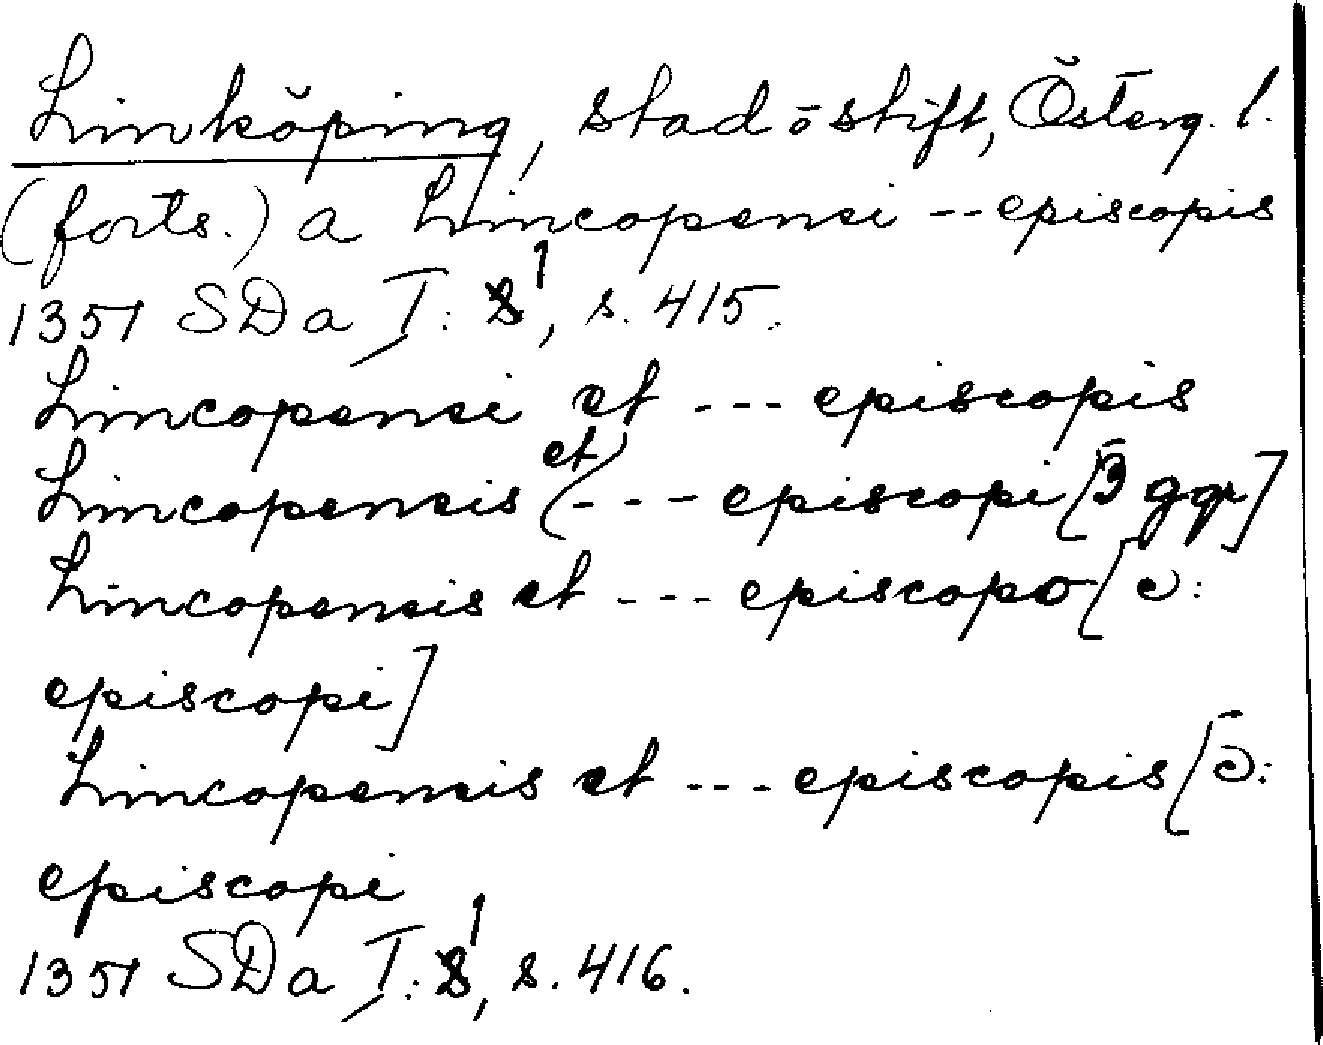 Linköping, stad o stift, Österg. l.
(forts.) a Lincopensi -- episcopis
1351 SDa I: 1, s. 415.
Lincopensi et --- episcopis
Lincopensis (et) --- episcopi [3 ggr]
Lincopensis et --- episcopo [ɔ:
episcopi]
Lincopensis et --- episcopis [ɔ:
episcopi
1351 SDa I: 1, s. 416.